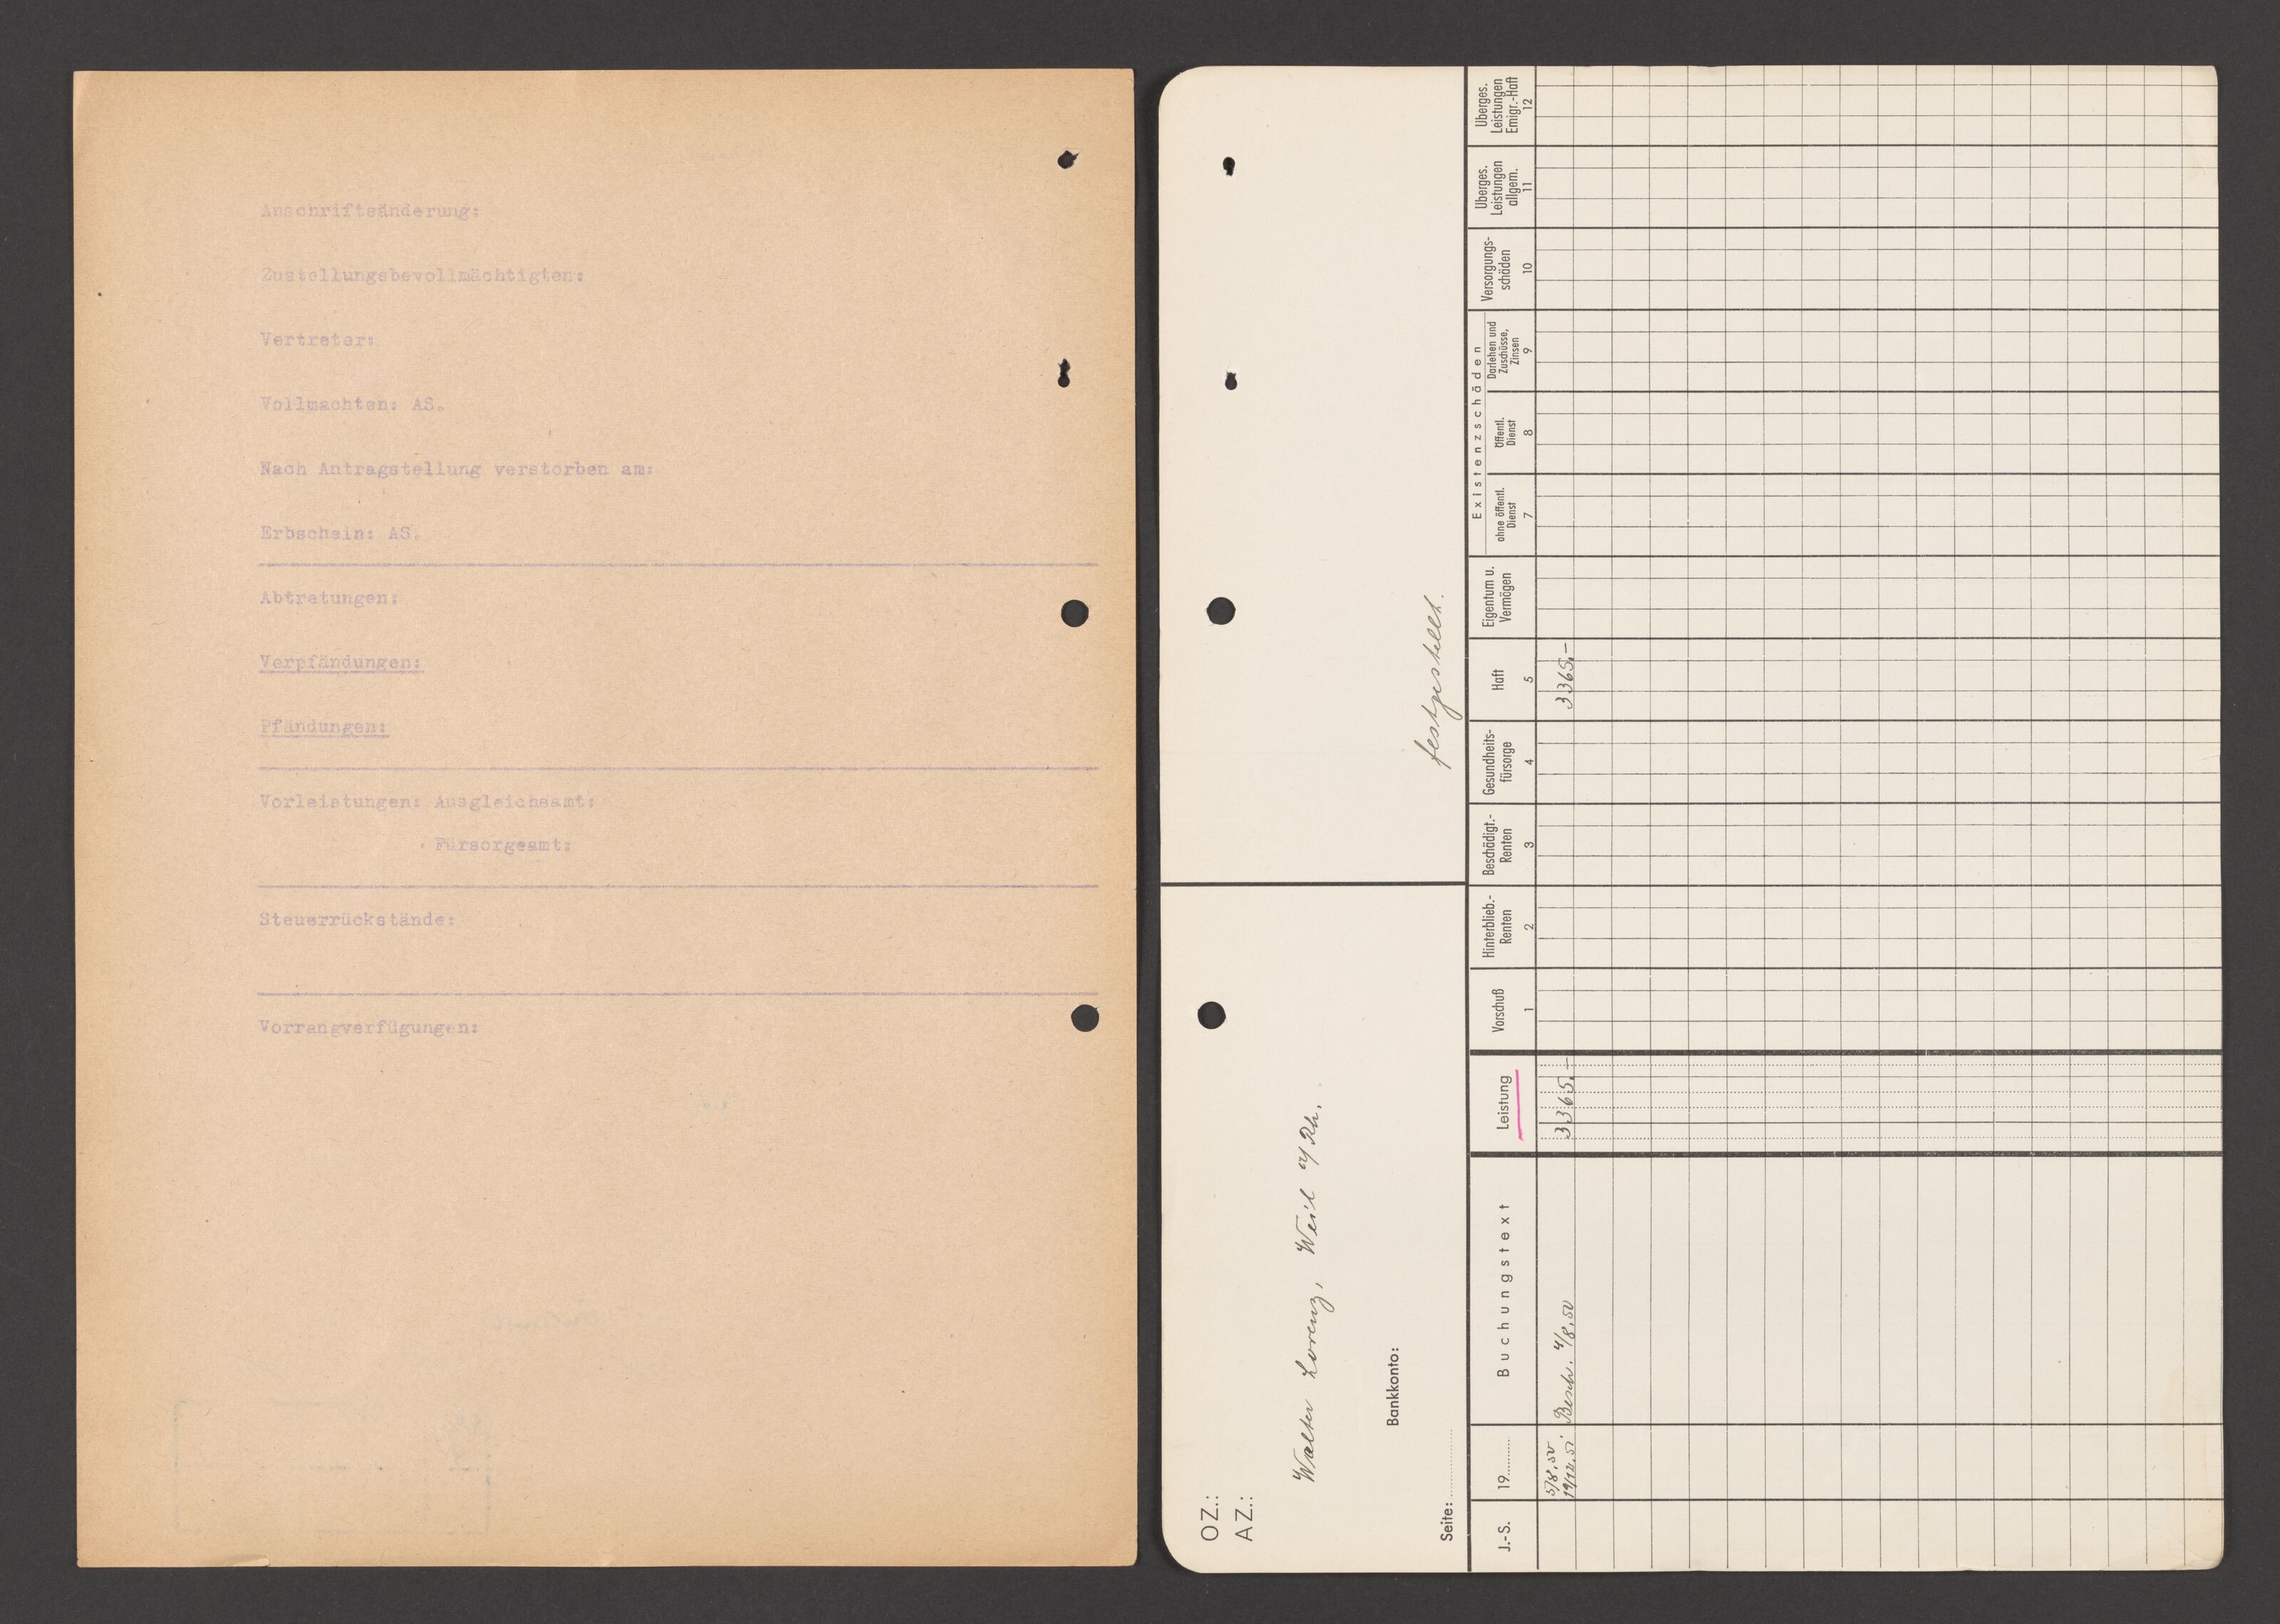 Anschriftsänderung:
Zustellungsbevollmächtigten:
Vertreter:
Vollmachten: AS.
Nach Antragstellung verstorben am:
Erbschein: AS.
Abtretungen:
Verpfändungen:
Pfändungen:
Vorleistungen: Ausgleichsamt:
Fürsorgeamt:
Steuerrückstände:
Vorrangverfügungen:
OZ.:
AZ.:
Walter Lorenz, Weil a/Rh.
Bankkonto:
festgestellt.
Seite:
J.-S.
19
Buchungstext
Leistung
Vorschuß
1
Hinterblieb.-
Renten
2
Beschädigt.-
Renten
3
Gesundheits-
fürsorge
4
Haft
5
Eigentum u.
Vermögen
Existenzschäden
ohne öffentl.
Dienst
7
Öffentl.
Dienst
8
Darlehen und
Zuschüsse,
Zinsen
9
Versorgungs-
schäden
10
Überges.
Leistungen
allgem.
11
Überges.
Leistungen
Emigr.-Haft
12
5/8.50
19/12.51 Besch. 4/8.50 3365.- 3365.-